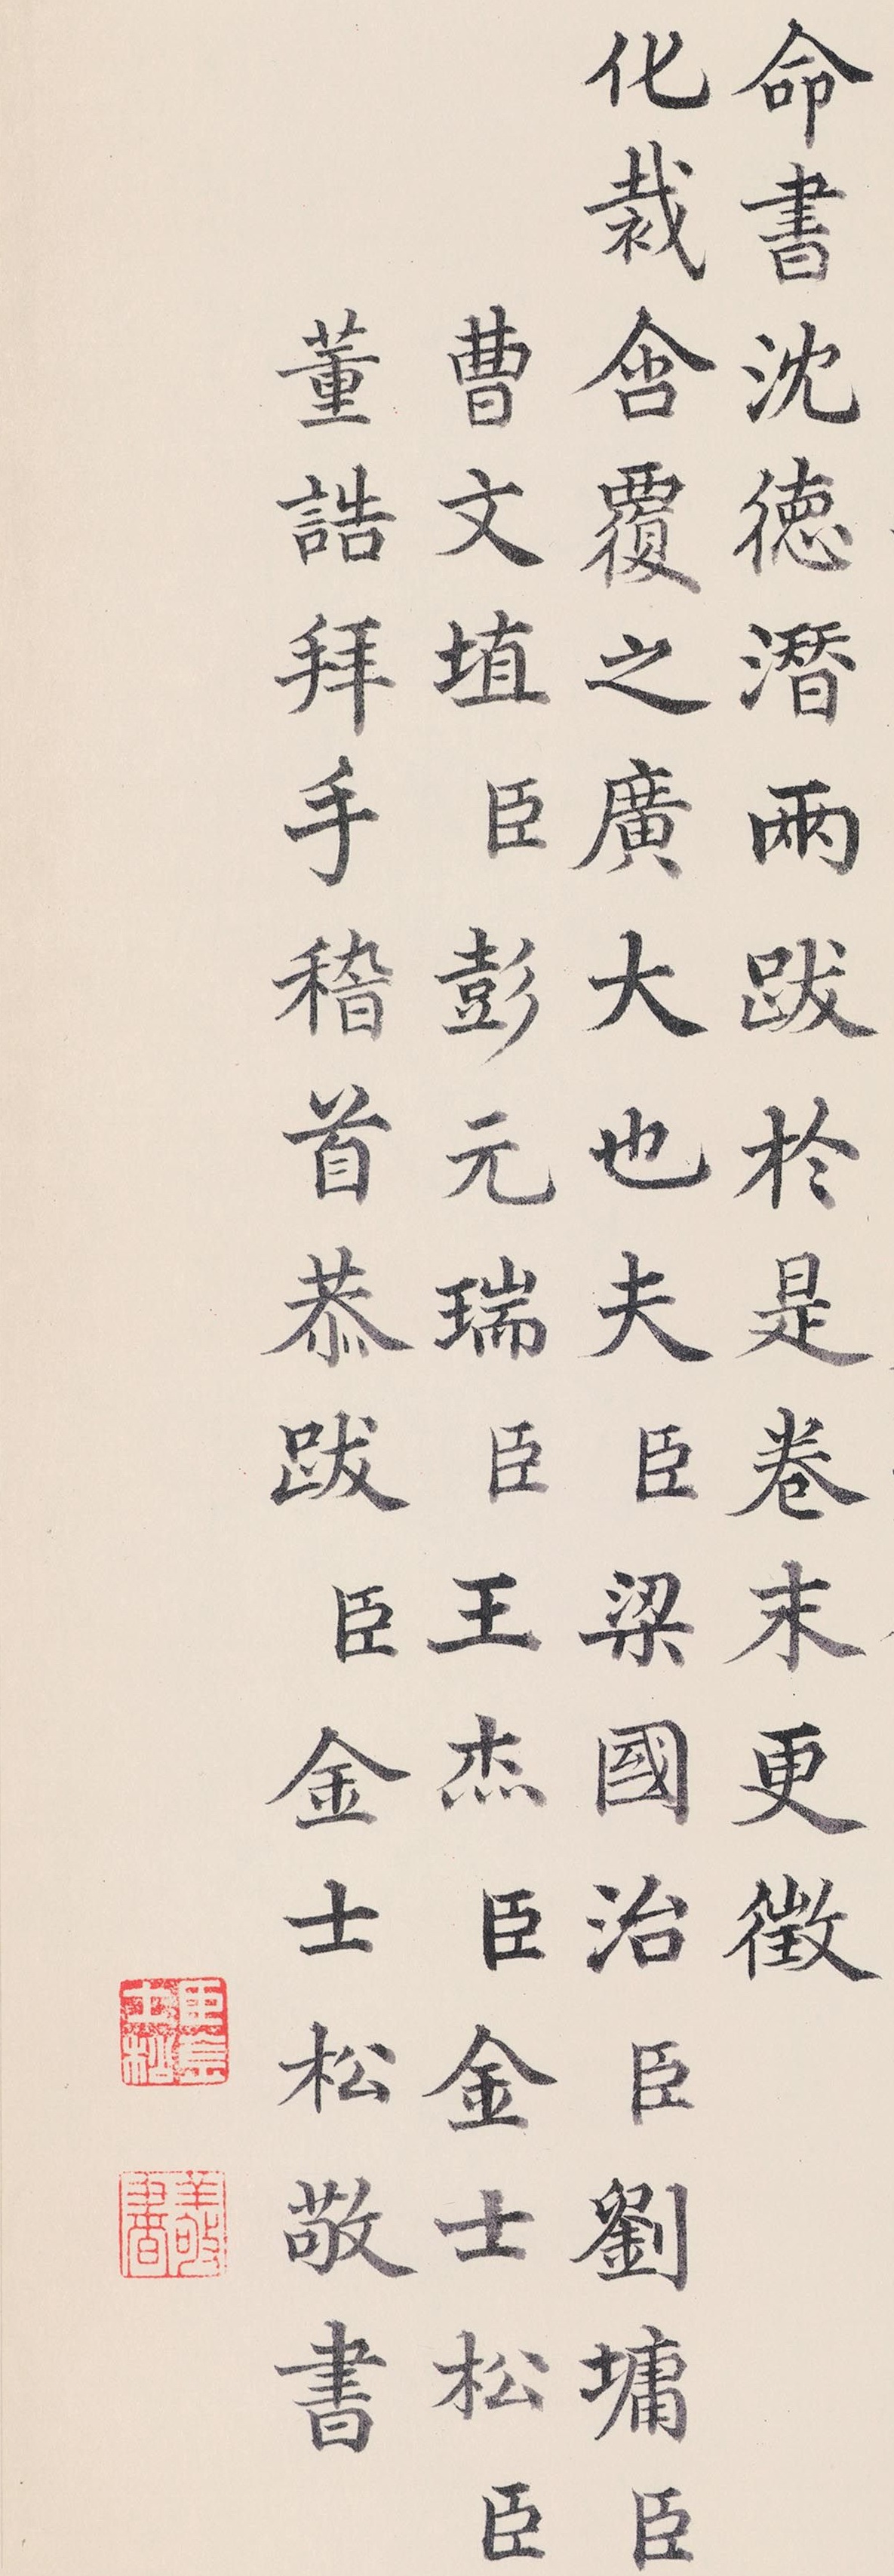 命書沈徳潛兩跋於是卷末更徵
化裁含覆之廣大也夫臣梁國治臣劉墉臣
曹文埴臣彭元瑞臣王杰臣金士松臣
董誥拜手稽首恭跋臣金士松敬書
臣金士松
敬書